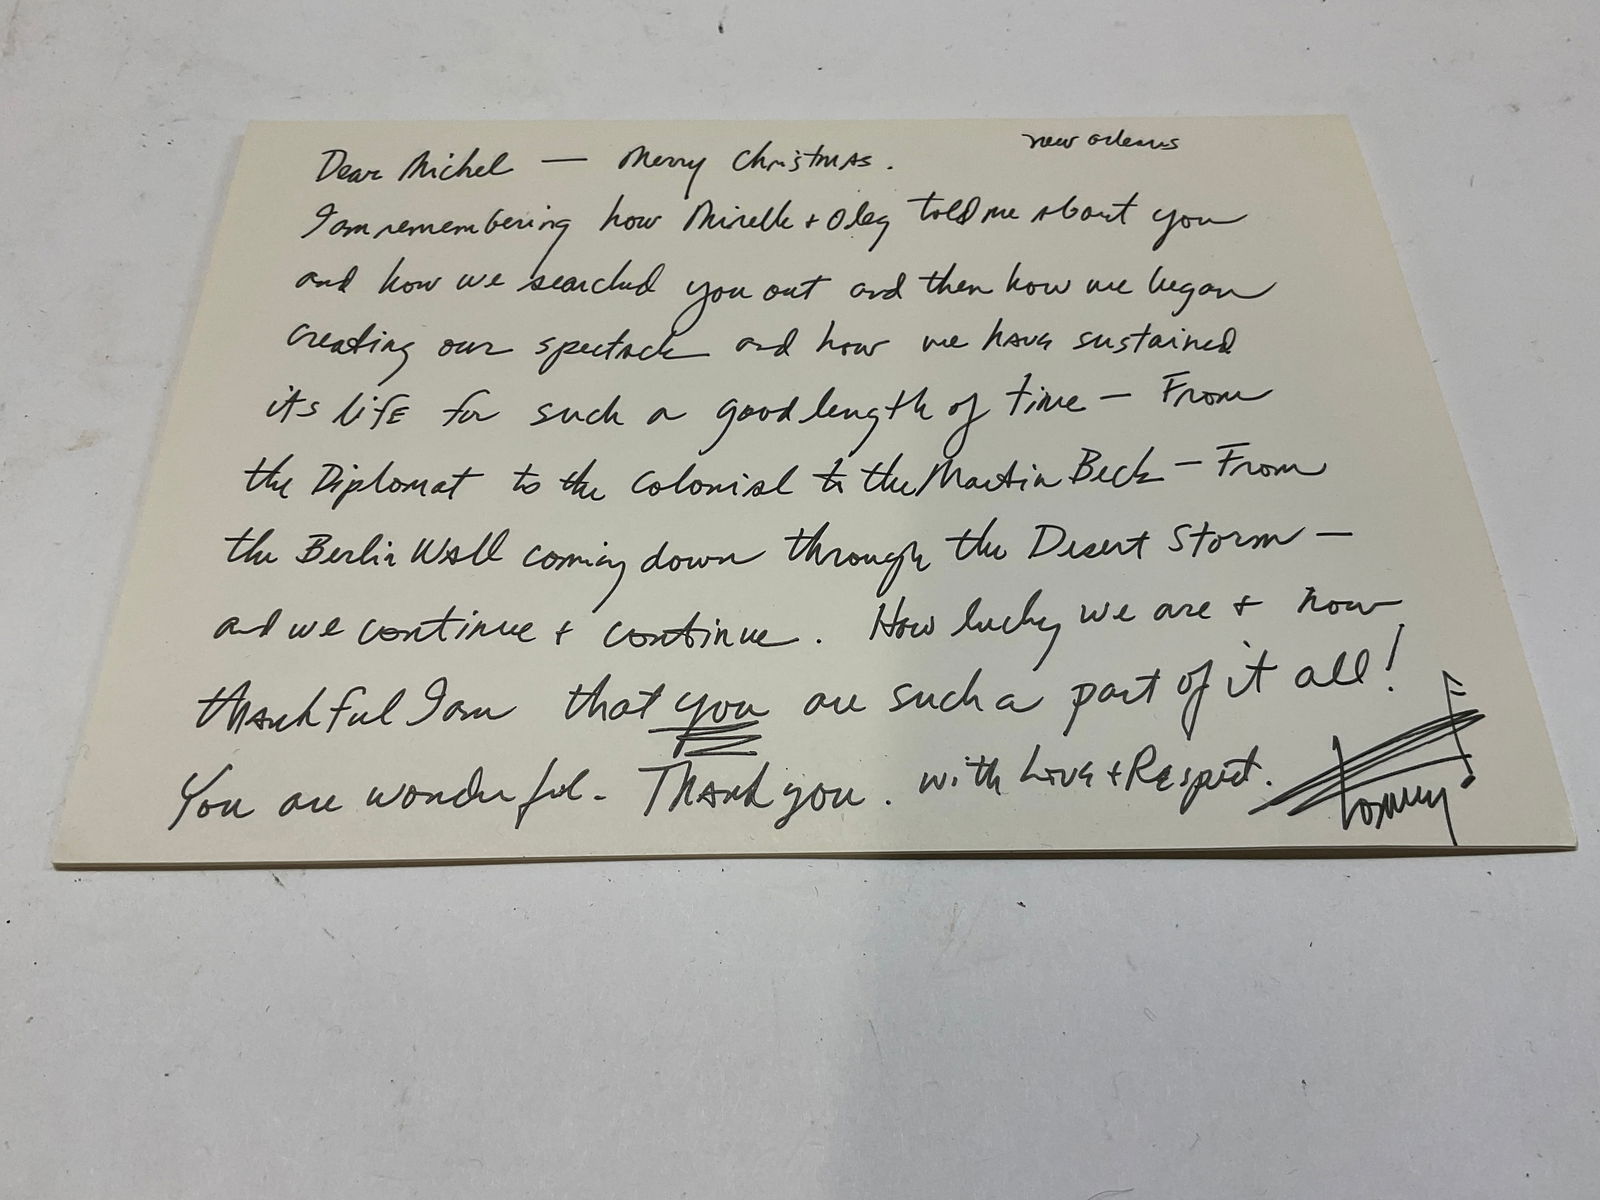 new orleans
Dear Michel — Merry Christmas.
I am remembering how Mirelle + Oleg told me about you
and how we searched you out and then how we began
creating our spectacle and how we have sustained
its life for such a good length of time — From
the Diplomat to the Colonial to the Martin Beck — From
the Berlin Wall coming down through the Desert Storm —
and we continue + continue. How lucky we are + how
thankful I am that you are such a part of it all!
You are wonderful. Thank you. with Love + Respect.
Tommy